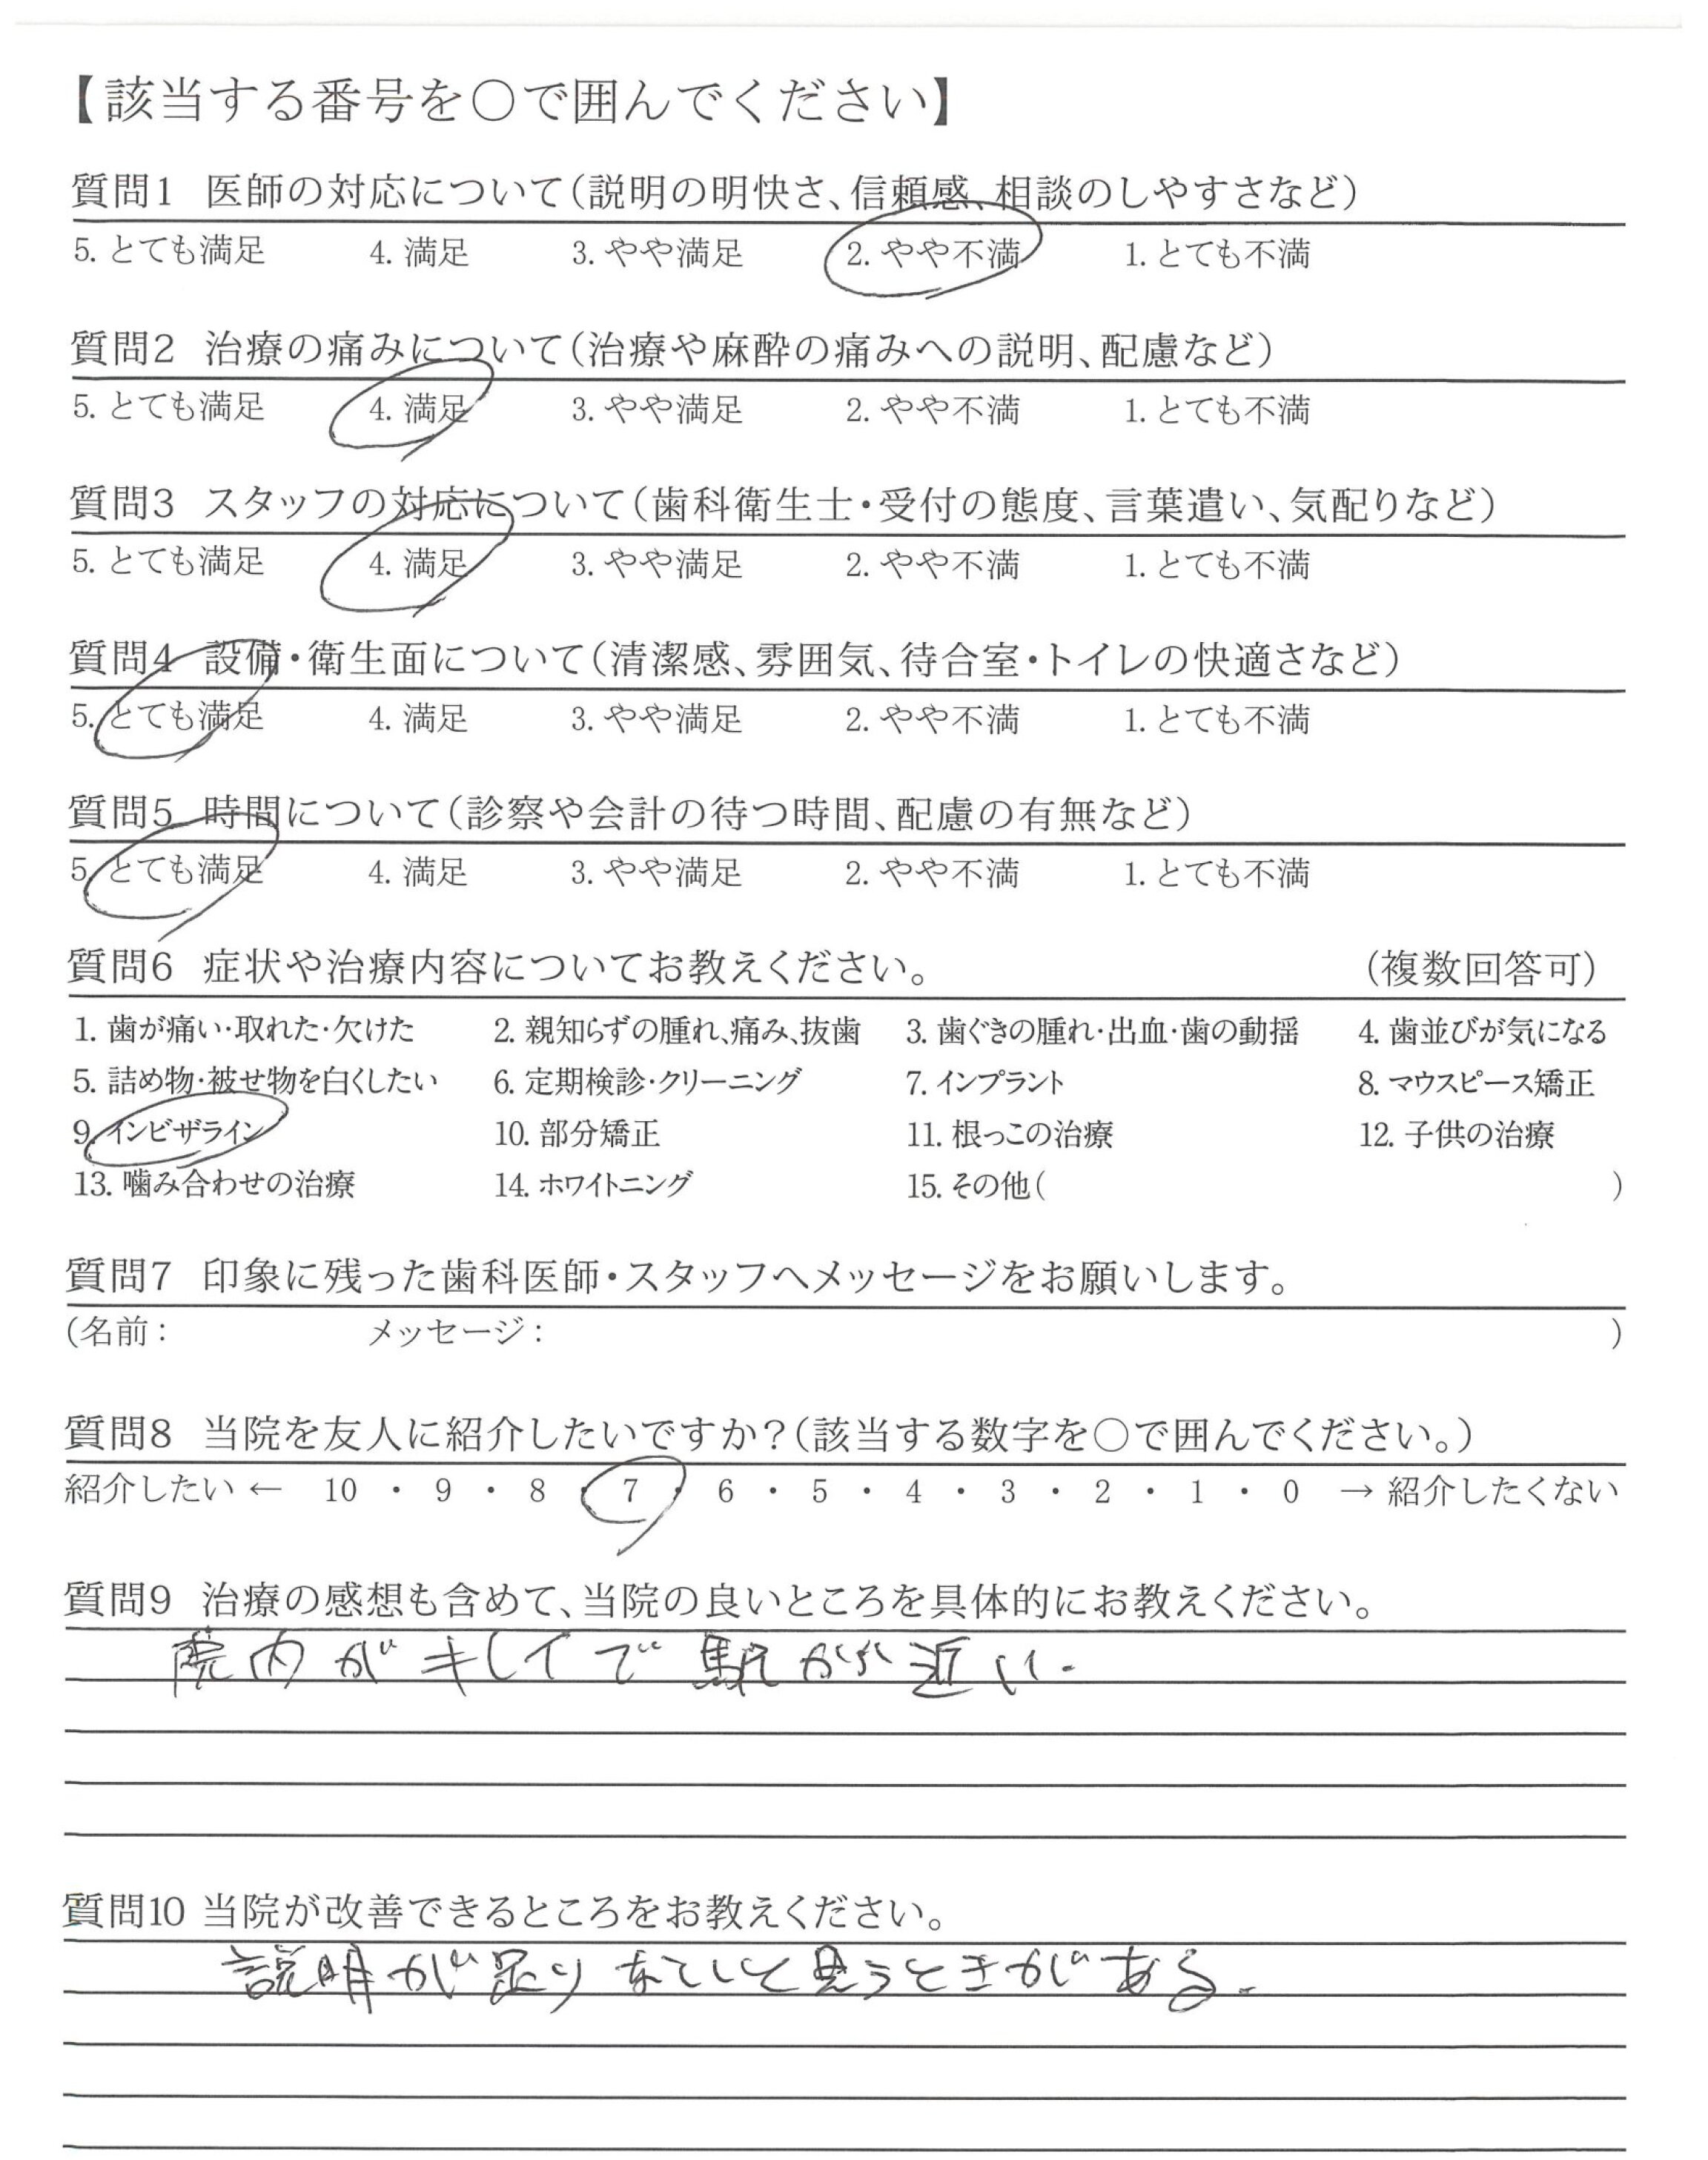 【該当する番号を○で囲んでください】
質問1 医師の対応について(説明の明快さ、信頼感、相談のしやすさなど)
5. とても満足 4. 満足 3. やや満足 2. やや不満 1. とても不満
質問2 治療の痛みについて(治療や麻酔の痛みへの説明、配慮など)
5. とても満足 4. 満足 3. やや満足 2. やや不満 1. とても不満
質問3 スタッフの対応について(歯科衛生士・受付の態度、言葉遣い、気配りなど)
5. とても満足 4. 満足 3. やや満足 2. やや不満 1. とても不満
質問4 設備・衛生面について(清潔感、雰囲気、待合室・トイレの快適さなど)
5. とても満足 4. 満足 3. やや満足 2. やや不満 1. とても不満
質問5 時間について(診察や会計の待つ時間、配慮の有無など)
5. とても満足 4. 満足 3. やや満足 2. やや不満 1. とても不満
質問6 症状や治療内容についてお教えください。 (複数回答可)
1. 歯が痛い・取れた・欠けた 2. 親知らずの腫れ、痛み、抜歯 3. 歯ぐきの腫れ・出血・歯の動揺 4. 歯並びが気になる
5. 詰め物・被せ物を白くしたい 6. 定期検診・クリーニング 7. インプラント 8. マウスピース矯正
9. インビザライン 10. 部分矯正 11. 根っこの治療 12. 子供の治療
13. 噛み合わせの治療 14. ホワイトニング 15. その他( )
質問7 印象に残った歯科医師・スタッフへメッセージをお願いします。
(名前: メッセージ: )
質問8 当院を友人に紹介したいですか?(該当する数字を○で囲んでください。)
紹介したい ← 10 ・ 9 ・ 8 ・ 7 ・ 6 ・ 5 ・ 4 ・ 3 ・ 2 ・ 1 ・ 0 → 紹介したくない
質問9 治療の感想も含めて、当院の良いところを具体的にお教えください。
院内がキレイで駅から近い.
質問10 当院が改善できるところをお教えください。
説明が足りないと思うときがある.